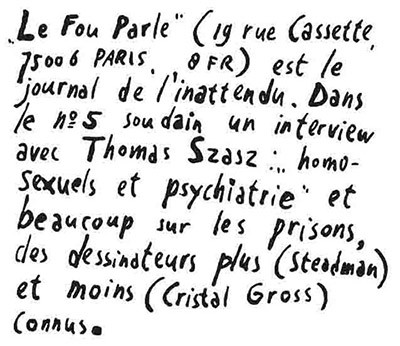 „Le Fou Parle" (19 rue Cassette,
75006 PARIS, 8 FR) est le
journal de l'inattendu. Dans
le nº 5 soudain un interview
avec Thomas Szasz : „homo-
sexuels et psychiatrie" et
beaucoup sur les prisons,
des dessinateurs plus (Steadman)
et moins (Cristal Gross)
connus.